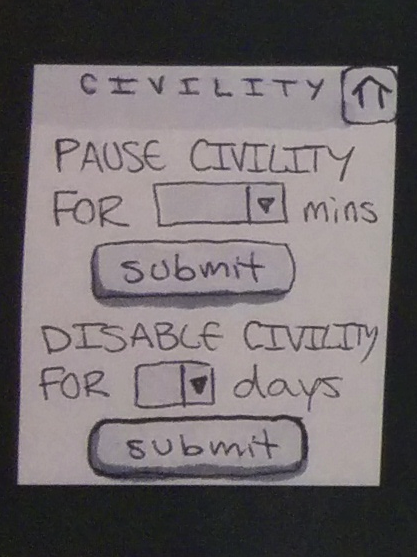 CIVILITY
PAUSE CIVILITY
FOR mins
submit
DISABLE CIVILITY
FOR days
submit